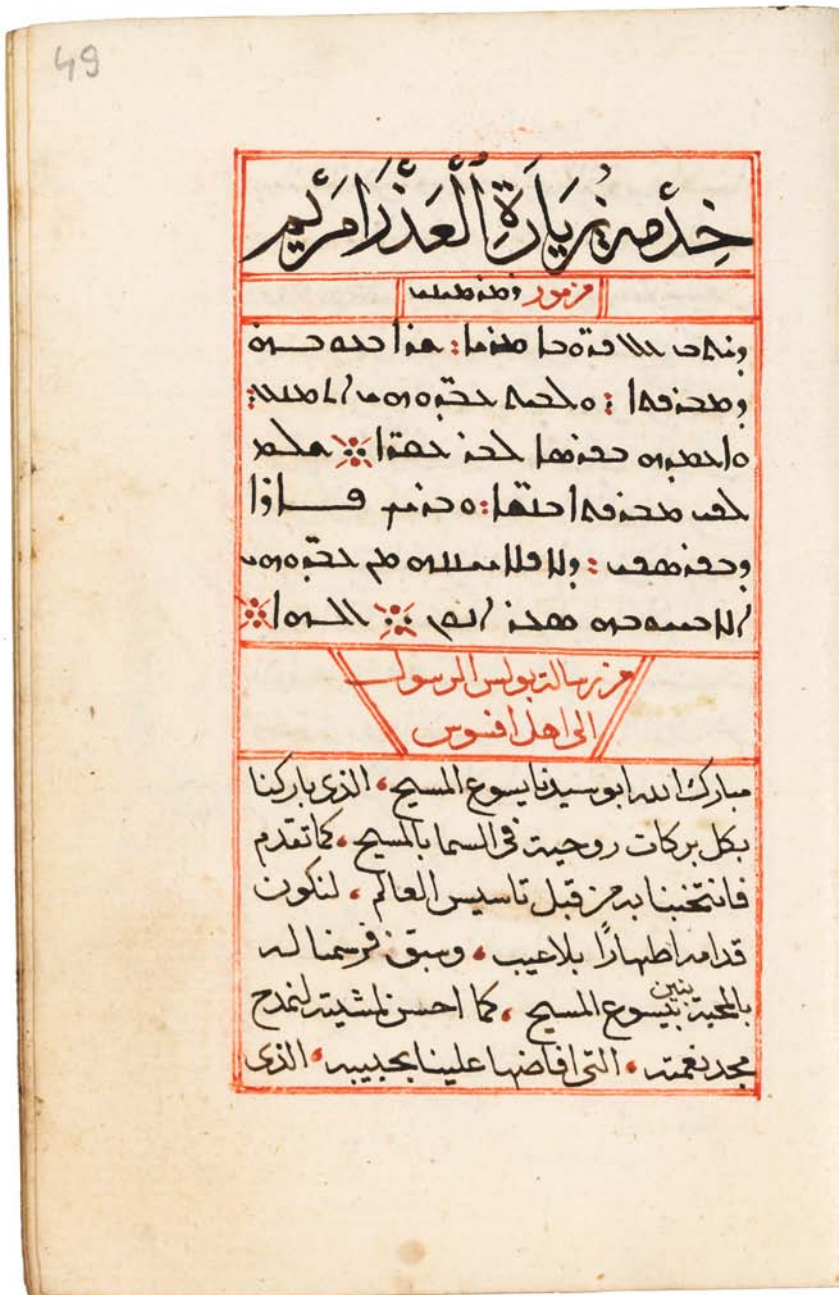 49
خِدْمة زِيَارَةِ ٱلْعَذْرَا مَرْيَم
مزمور
ܕܝܬܒ ܥܠ ܟܪ̈ܘܒܐ ܡܪܝܡܐ: ܫܪܐ ܒܥܘܒܗ̇
ܕܡܒܪܟܬܐ:
ܫܠܡ
ܠܟܝ ܡܒܪܟܬܐ ܒܢܫ̈ܐ: ܘܒܪܝܟ ܦܐܪܐ
ܕܒܟܪܣܟܝ: ܕܠܐ ܟܠܐ ܚܢܢܗ ܡܢ ܥܒܕ̈ܘܗܝ
ܐܠܐ ܒܚܘܒܗ ܣܥܪ ܐܢܘܢ ܐܠܗܐ
من رسالة بولس الرسول
الى اهل افسوس
مبارك الله ابو سيدنا يسوع المسيح، الذى باركنا
بكل بركات روحية فى السما بالمسيح، كما تقدم
فانتخبنا به من قبل تاسيس العالم، لنكون
قدامه اطهارًا بلا عيب، وسبق فرسمنا له
بالمحبة بنين بيسوع المسيح، كما احسن لمشيته لنمدح
مجد نعمته، التى افاضها علينا بحبيبه، الذى